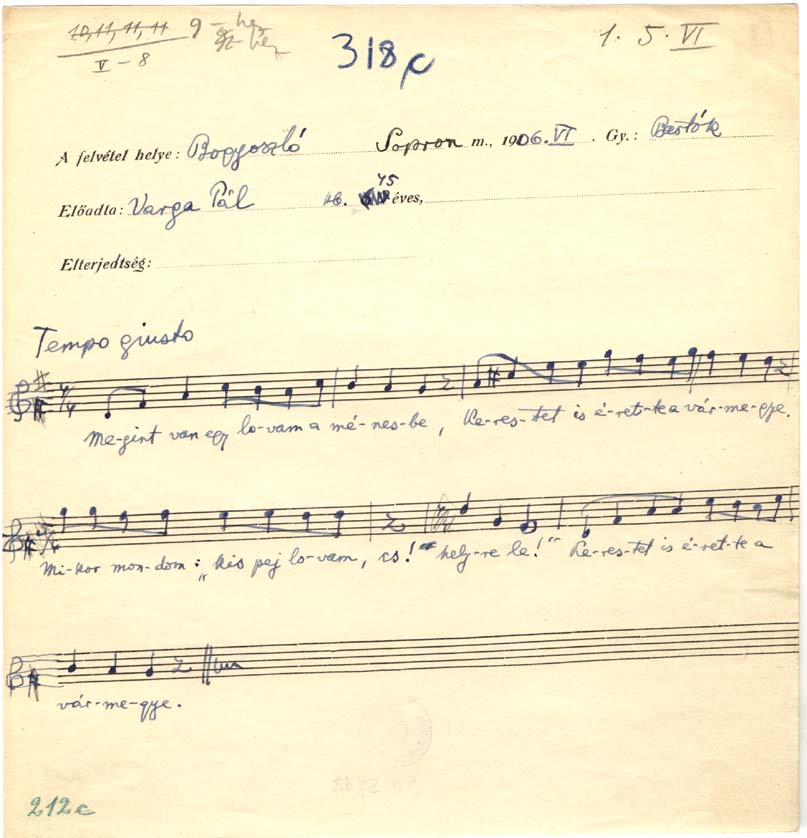 10, 11, 11, 11 9
V – 8
318c
1. 5. VI
A felvétel helye: Bogyoszló Sopron m., 1906. VI. Gy.: Bartók
Előadta: Varga Pál 45 éves,
Elterjedtség:
Tempo giusto
Me-gint van egy lo-vam a mé-nes-be, Ke-res-tet is é-ret-te a vár-me-gye.
Mi-kor mon-dom: „kis pej lo-vam, cs! hely-re le!" Ke-res-tet is é-ret-te a
vár-me-gye.
212c